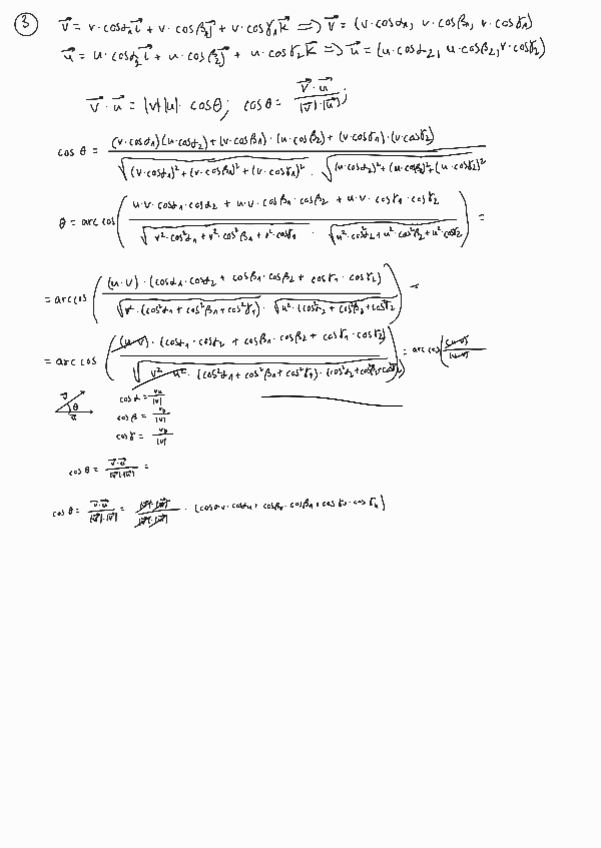 ③ v⃗ = v·cosα₁ i⃗ + v·cosβ₁ j⃗ + v·cosγ₁ k⃗ ⟹ v⃗ = (v·cosα₁, v·cosβ₁, v·cosγ₁)
u⃗ = u·cosα₂ i⃗ + u·cosβ₂ j⃗ + u·cosγ₂ k⃗ ⟹ u⃗ = (u·cosα₂, u·cosβ₂, v·cosγ₂)
v⃗·u⃗ = |v|·|u|·cosθ; cosθ = v⃗·u⃗ / |v⃗|·|u⃗|;
cosθ = (v·cosα₁)(u·cosα₂) + (v·cosβ₁)·(u·cosβ₂) + (v·cosγ₁)·(v·cosγ₂) / √(v·cosα₁)² + (v·cosβ₁)² + (v·cosγ₁)² · √(u·cosα₂)² + (u·cosβ₂)² + (u·cosγ₂)²
θ = arccos( u·v·cosα₁·cosα₂ + u·v·cosβ₁·cosβ₂ + u·v·cosγ₁·cosγ₂ / √v²·cos²α₁ + v²·cos²β₁ + v²·cos²γ₁ · √u²·cos²α₂ + u²·cos²β₂ + u²·cos²γ₂ ) =
= arccos( (u·v)·(cosα₁·cosα₂ + cosβ₁·cosβ₂ + cosγ₁·cosγ₂) / √v²·(cos²α₁ + cos²β₁ + cos²γ₁) · √u²·(cos²α₂ + cos²β₂ + cos²γ₂) ) =
= arccos( (u·v)·(cosα₁·cosα₂ + cosβ₁·cosβ₂ + cosγ₁·cosγ₂) / √v²·u²·(cos²α₁ + cos²β₁ + cos²γ₁)·(cos²α₂ + cos²β₂ + cos²γ₂) ) = arccos(
v⃗ θ u⃗
cosα = / |v|
cosβ = / |v|
cosγ = / |v|
cosθ = v⃗·u⃗ / |v⃗|·|u⃗| =
cosθ = v⃗·u⃗ / |v⃗|·|u⃗| = |v⃗|·|u⃗| / |v⃗|·|u⃗|